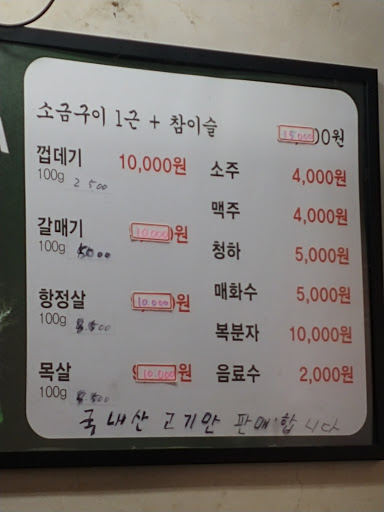 소금구이 1근 + 참이슬 15,000원
껍데기 10,000원
100g 2500
갈매기 10,000원
100g 5000
항정살 10,000원
100g
목살 10,000원
100g
소주 4,000원
맥주 4,000원
청하 5,000원
매화수 5,000원
복분자 10,000원
음료수 2,000원
국내산 고기만 판매합니다